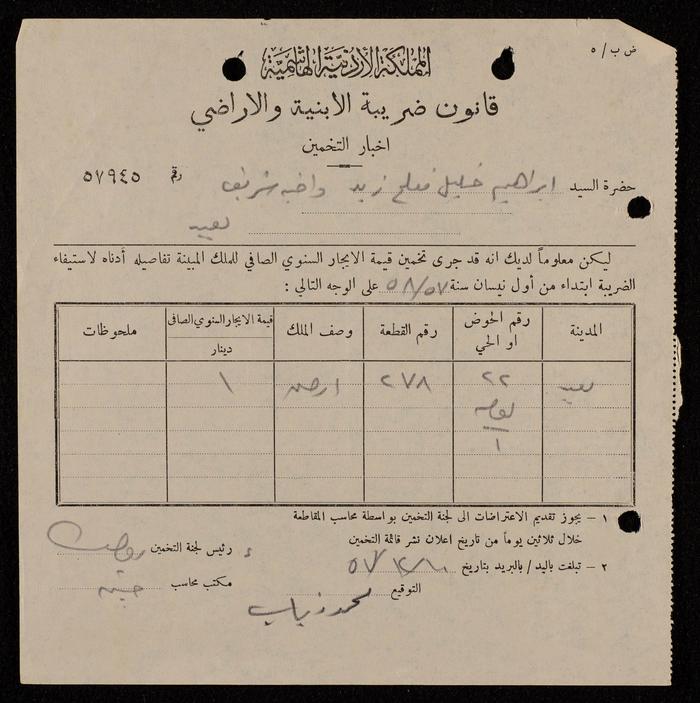 ض ب / ٥
المملكة الاردنية الهاشمية
قانون ضريبة الأبنية والاراضي
اخبار التخمين
رقم ٥٧٩٤٥
حضرة السيد ابراهيم خليل مفلح زيد واخيه شريف
يعبد
ليكن معلوماً لديك انه قد جرى تخمين قيمة الايجار السنوي الصافي للملك المبينة تفاصيله أدناه لاستيفاء
الضريبة ابتداء من أول نيسان سنة ٥٨/٥٧ على الوجه التالي :
المدينة | رقم الحوض او الحي | رقم القطعة | وصف الملك | قيمة الايجار السنوي الصافي دينار | ملحوظات
يعبد | ٢٢ | ٢٧٨ | ارض | ١
١
١ – يجوز تقديم الاعتراضات الى لجنة التخمين بواسطة محاسب المقاطعة
خلال ثلاثين يوماً من تاريخ اعلان نشر قائمة التخمين
رئيس لجنة التخمين
٢ – تبلغت باليد / بالبريد بتاريخ
مكتب محاسب جنين
التوقيع